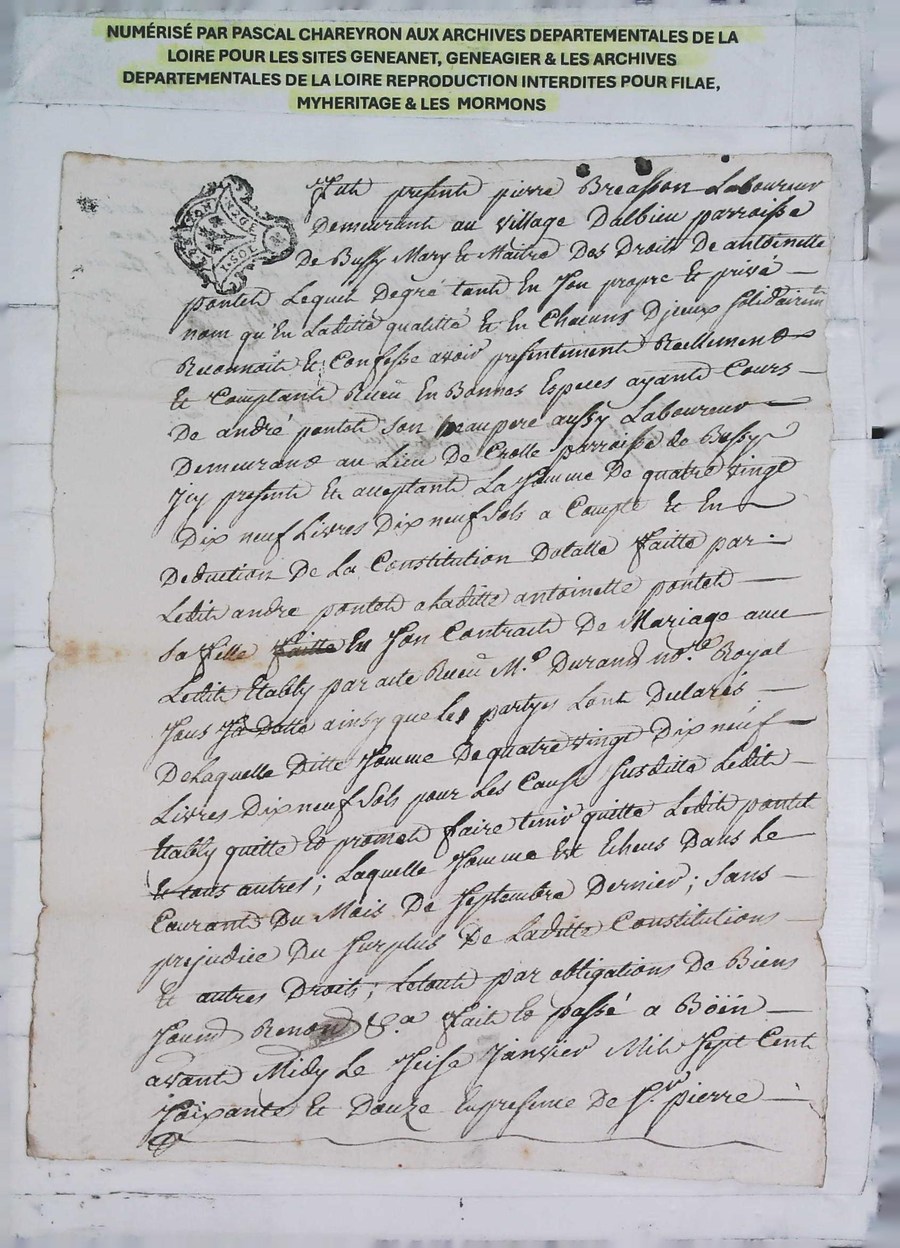 NUMÉRISÉ PAR PASCAL CHAREYRON AUX ARCHIVES DEPARTEMENTALES DE LA
LOIRE POUR LES SITES GENEANET, GENEAGIER & LES ARCHIVES
DEPARTEMENTALES DE LA LOIRE REPRODUCTION INTERDITES POUR FILAE,
MYHERITAGE & LES MORMONS
fut present pierre Breasson Laboureur
Demeurant au village Dalbieu parroisse
De Bussy Mary et Maitre Des Droits De antoinette
pontet Lequel Degré tant En Son propre et privé
nom qu'En Laditte qualitté et En Chacuns D'jceux solidairemt
Reconnoit et Confesse avoir presentement Reellement
et Comptant Reçu En Bonnes Especes ayant Cours
De andré pontet son beaupere aussy Laboureur
Demeurant au Lieu De Crolle parroisse de Bussy
Jcy present et acceptant La Somme De quatre vingt
Dix neuf Livres Dix neuf Sols a Compte et En
Deduction De La Constitution Dotalle faitte par
Ledit andre pontet a Laditte antoinette pontet
sa fille En Son Contract De Mariage avec
Ledit Etably par acte Reçu Me Durand nore Royal
Sous Sa Datte ainsy que les partyes L'ont Declarés
De Laquelle Ditte Somme De quatre vingt Dix neuf
Livres Dix neuf Sols pour Les Cause susditte Ledit
Etably quitte et promet faire tenir quitte Ledit pontet
Et tous autres; Laquelle Somme Est Echeus Dans Le
Courant Du Mois De Septembre Dernier; sans
prejudice Du surplus De Laditte Constitutions
et autres Droits; Letout par obligations De Biens
Soumd Renond &a fait et passé a Böën
avant Midy Le Seise Janvier Mil Sept Cent
Soixante et Douze En presence De Sr. pierre